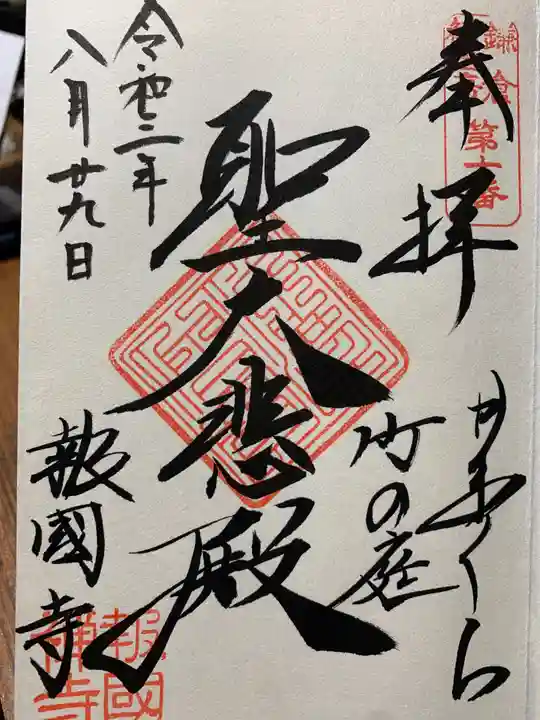 奉拝
第十番
かまくら
竹の庭
聖大悲殿
令和二年
八月廿九日
報國寺
報國
禅寺